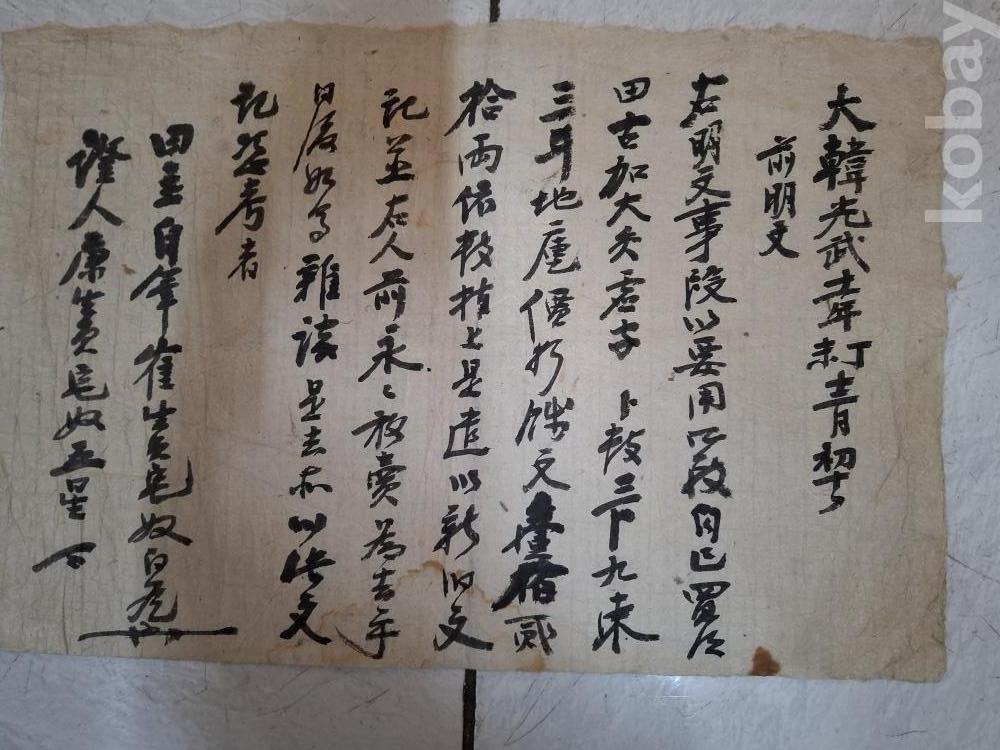 大韓光武十一年丁未十一月初十日
前明文
右明文事段以要用所致自己買得
田古加大員字卜数三卜九束
三斗地庫價折錢文壹拾貳
拾兩依数捧上是遣以新旧文
記並右人前永々放賣為去乎
日後如有雜談是去亦以此文
記憑考者
田主自筆崔生員宅奴白
證人康生員宅奴五星
kobay